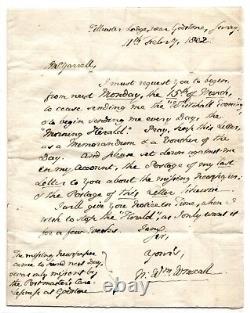 Lodge, near Godstone, Surrey
11th Feb'y, 1802
Mr Yarrall,
I must request you to begin,
from next Monday, the 15th of March,
to cease sending me the "Whitehall Evening"
& to begin sending me every Day, the
"Morning Herald". Pray, keep this Letter
as a Memorandum & a Voucher of the
Day. And please set down against me
in my Account, the Postage of my last
Letter to You about the missing Newspaper
& the Postage of this Letter likewise.
I will give you Notice in Time, when I
wish to stop the "Herald", as I only want it
for a few Weeks.
I am
Sir,
Yours,
Wm
The missing Newspaper
came to hand next Day,
& was only missent by
the Postmaster's Care-
at Godstone